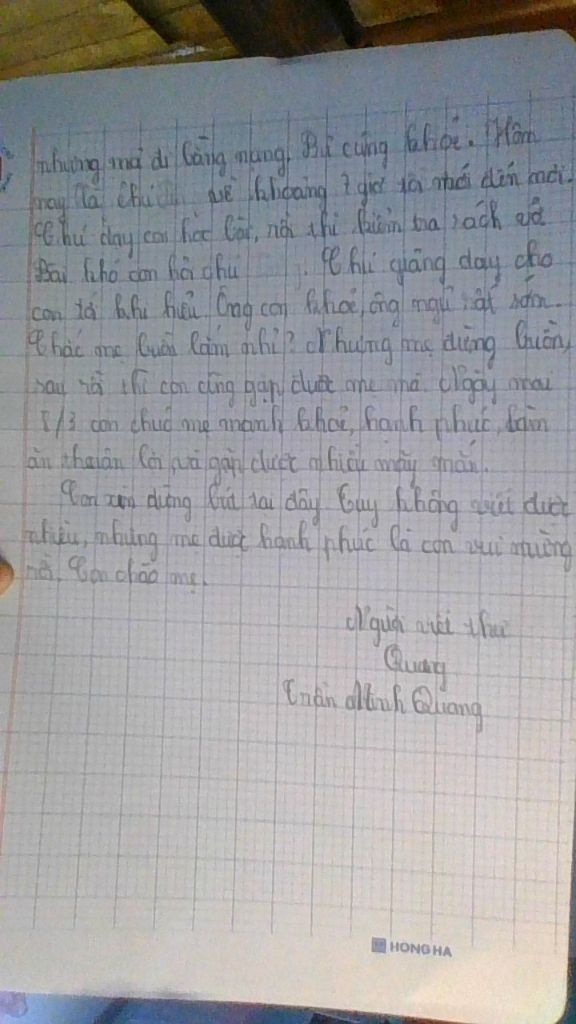 nhưng mà đi bằng nạng. Bà cũng khoẻ. Hôm
nay là chú về khoảng 7 giờ tối mới đến nơi.
Chú dạy con học bài, rồi thì kiểm tra sách vở
Bài khó con hỏi chú. Chú giảng dạy cho
con tới khi hiểu. Ông con khoẻ, ông ngủ rất sớm.
Chắc mẹ buồn lắm nhỉ? Nhưng mẹ đừng buồn,
sau rồi thì con cũng gặp được mẹ mà. Ngày mai
8/3 con chúc mẹ mạnh khoẻ, hạnh phúc, làm
ăn thuận lợi và gặp được nhiều may mắn.
Con xin dừng bút tại đây tuy không viết được
nhiều, nhưng mẹ được hạnh phúc là con vui mừng
rồi. Con chào mẹ.
Người viết thư
Quang
Trần Minh Quang
HONG HA